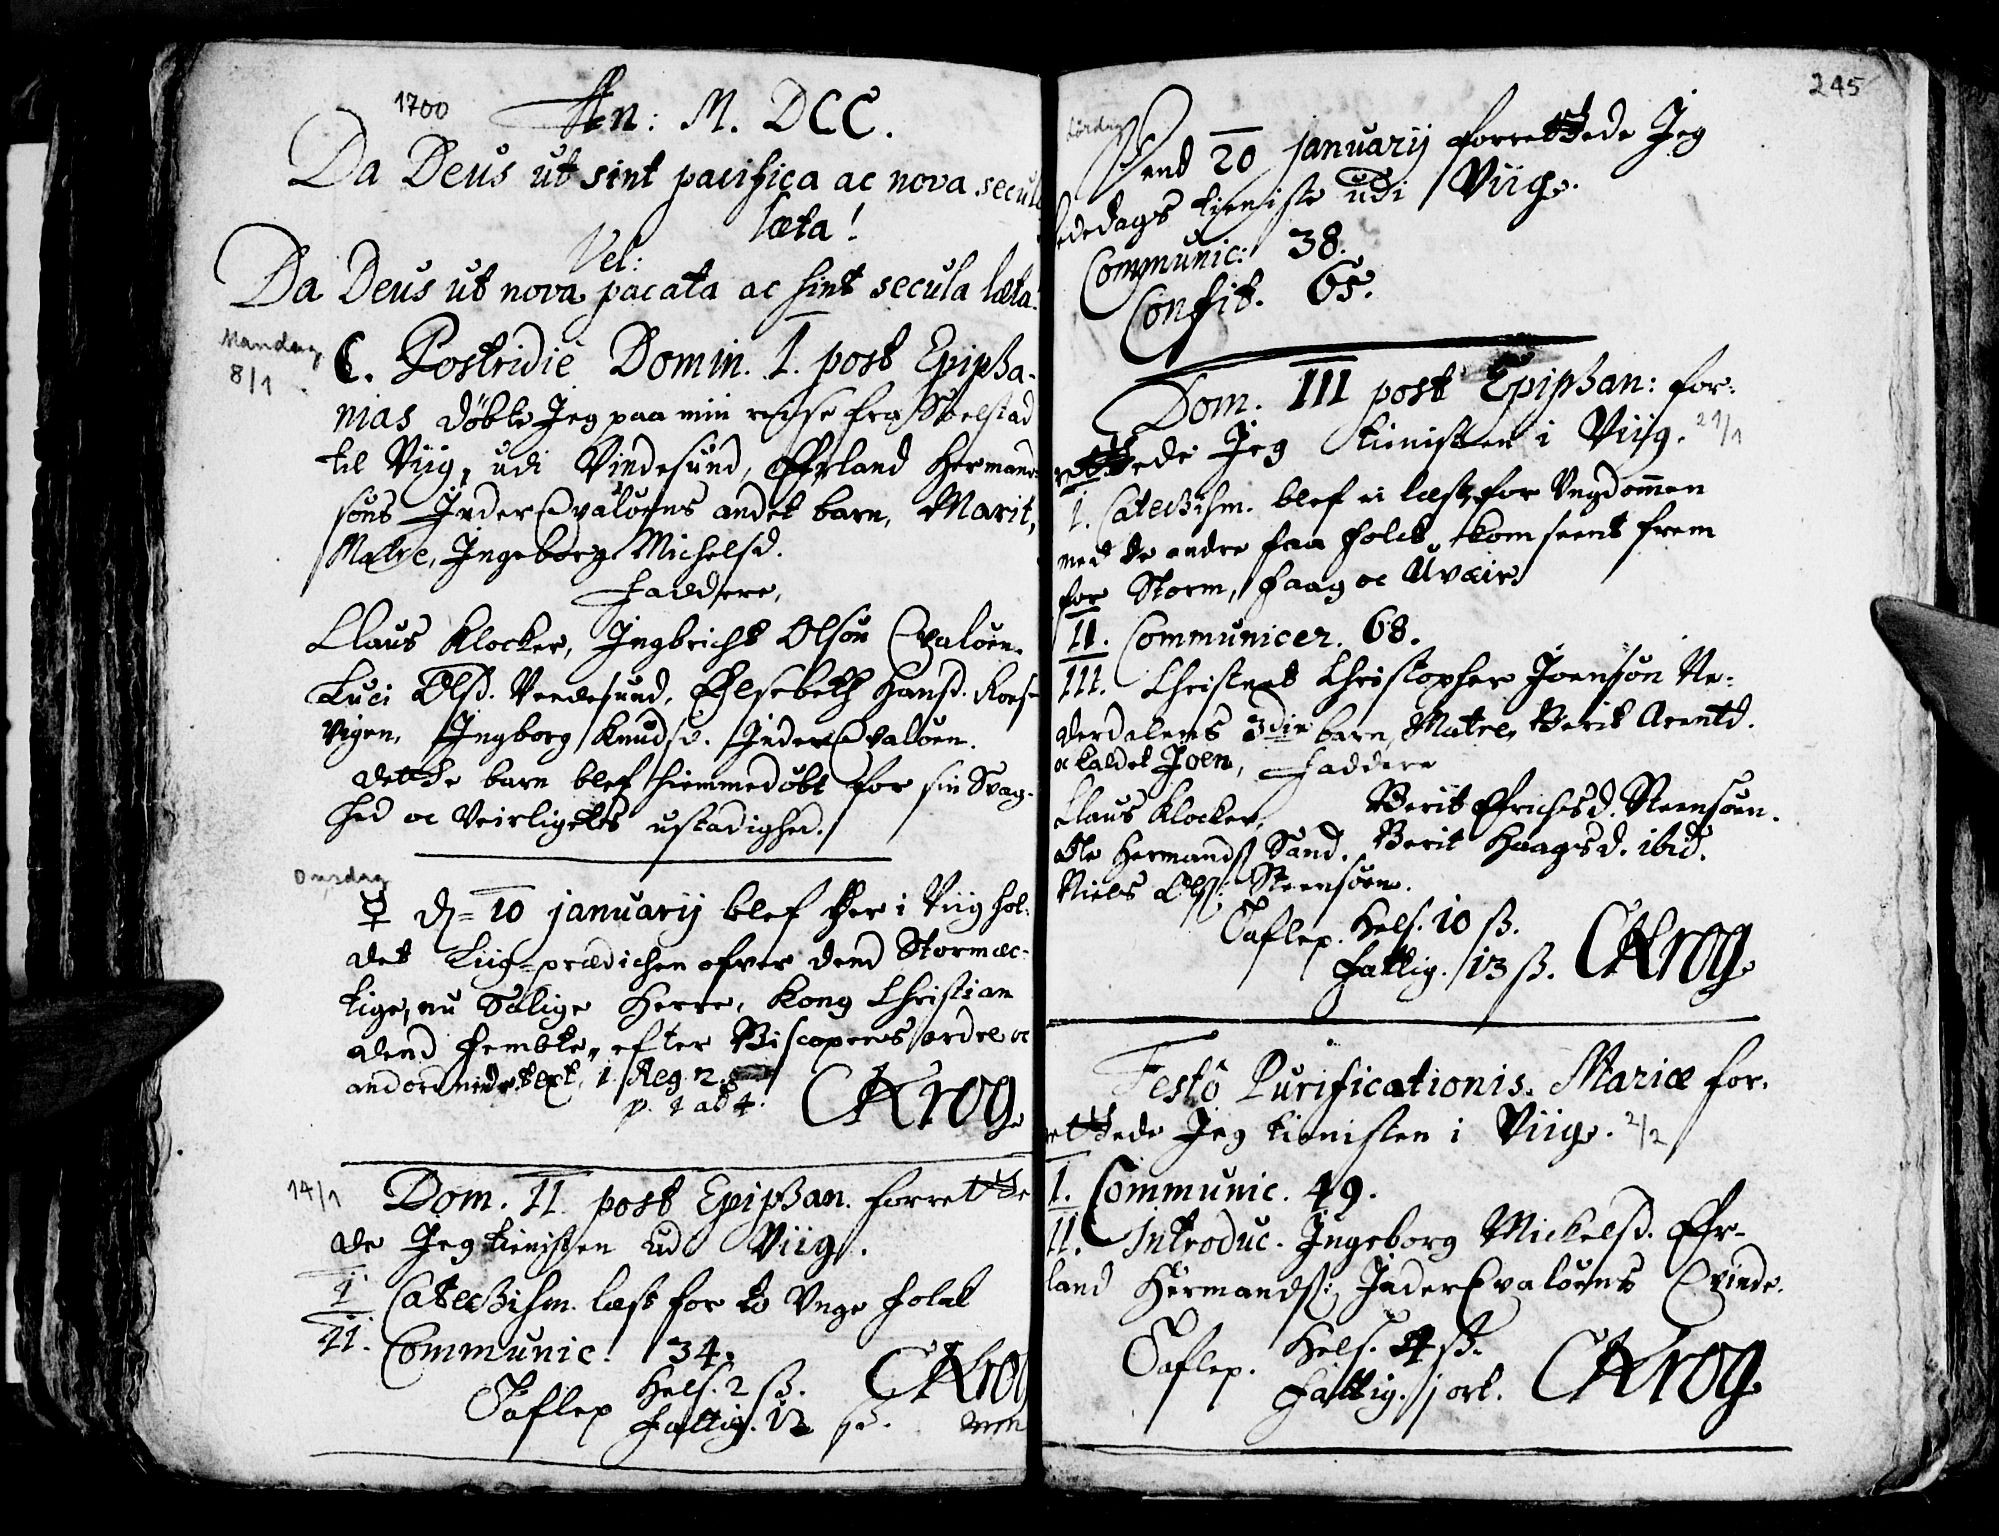 1700 An: M. DCC.
Da Deus ut sint pacifica ac nova secula
læta!
Vel:
Da Deus ut nova pacata ac sint secula læta!
Mandag
8/1
☾. Postridiè Domin. I. post Epipha-
nias döbte Jeg paa min reyse fra
til Viig, udi Vindesund, Erland Hermand-
söns Inder Qvalöens andet barn, Marit,
Matre, Ingeborg Michelsd.
Faddere,
Claus Klocker, Ingbricht Olsön Qvalöen.
Luci Olsd. Verdesund, Elsebeth Hansd. Kors-
vigen, Ingborg Knudsd. Inder Qvalöen.
dette barn blef hiemmedöbt for sin Svag-
hed oc Veirligetts ustadighed.
Onsdag
☿ d. 10 januarij blef her i Viig hol-
det Liig-prædichen ofver dend Stormæc-
tige, nu Salige Herre, Kong Christian
dend Fembte, efter Biscopens ordre oc
text, 1. Reg. 2.
p. 1 ad 4. CKrog.
14/1 Dom. II. post Epiphan. forrette-
de Jeg tienisten udi Viig.
I. Catechism. læst for to Unge folck
II. Communic: 34.
Taflep Hels. 2 ß. CKrog
Fattig. 12 ß.
245
Lördag
Dend 20 januarij forrettede Jeg
bededags tieniste udi Viig.
Communic: 38.
Confit. 65.
Dom. III post Epiphan: for-
rettede Jeg tienisten i Viig. 21/1
I. Catechism. blef ei læst, for Ungdommen
med de andre faa folck kom seent frem
for Storm, Faag oc Uvæir.
II. Communicer. 68.
III. Christnet Christopher Joensön Ne-
derdalens 3die barn, Matre, Berit Arentd.
oc kaldet Joen, Faddere
Claus Klocker, Berit Erichsd. Steensöen.
Ole Hermandß Sand. Berit Haagsd. ibid.
Niels Olß: Steensöen.
Taflep. Hels. 10 ß.
Fattig. 13 ß. CKrog.
Festô Purificationis Mariæ for-
rettede Jeg tienisten i Viig. 2/2
I. Communic. 49.
II. Introduc. Ingeborg Mickelsd. Er-
land Hermandß: Inder Qvalöens Qvinde.
Taflep. Hels. 4 ß.
Fattig. j ort. CKrog.